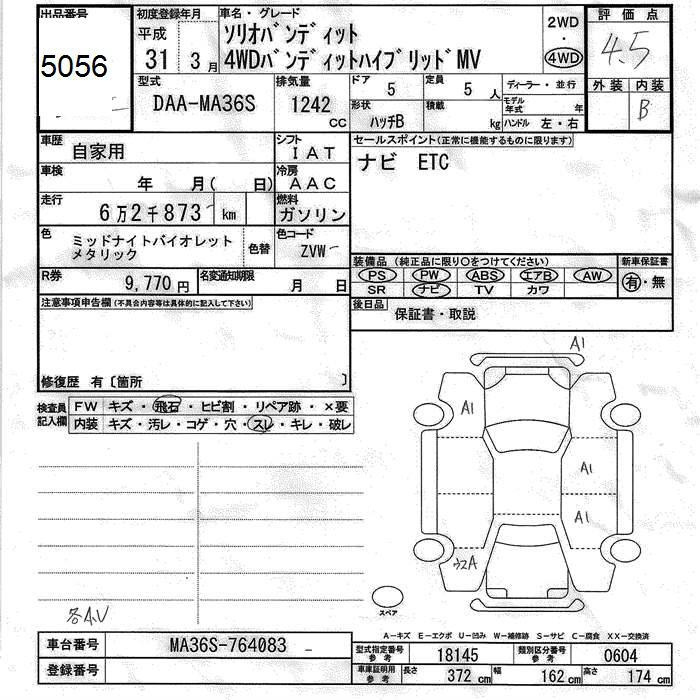 出品番号
5056
初度登録年月
平成
31 3月
車名・グレード
ソリオバンディット
4WDバンディットハイブリッドMV
2WD
・
4WD
評価点
4.5
外装 内装
B
型式
DAA-MA36S
排気量
1242
cc
ドア
5
定員
5 人
ディーラー・並行
形状
ハッチB
積載
kg
モデル年式 年
ハンドル 左・右
車歴
自家用
シフト
IAT
セールスポイント(正常に機能するものに限ります)
ナビ ETC
車検
年 月( 日)
冷房
AAC
走行
6万2千873 km
燃料
ガソリン
色
ミッドナイトバイオレット
メタリック
色替
色コード
ZVW
装備品(純正品に限り○をつけてください)
PS PW ABS エアB AW
SR ナビ TV カワ
新車保証書
有・無
R券
9,770円
名変通知期限
月 日
後日品
保証書・取説
注意事項申告欄(不具合内容等は具体的に記入して下さい)
修復歴 有〔箇所 〕
検査員
記入欄
FW キズ・飛石・ヒビ割・リペア跡・×要
内装 キズ・汚レ・コゲ・穴・スレ・キレ・破レ
A1
A1
A1
A1
スペア
A-キズ E-エクボ U-凹み W-補修跡 S-サビ C-腐食 XX-交換済
車台番号
MA36S-764083
登録番号
型式指定番号
参考
18145
類別区分番号
参考
0604
車庫証明用
参考
長さ 372 cm
幅 162 cm
高さ 174 cm